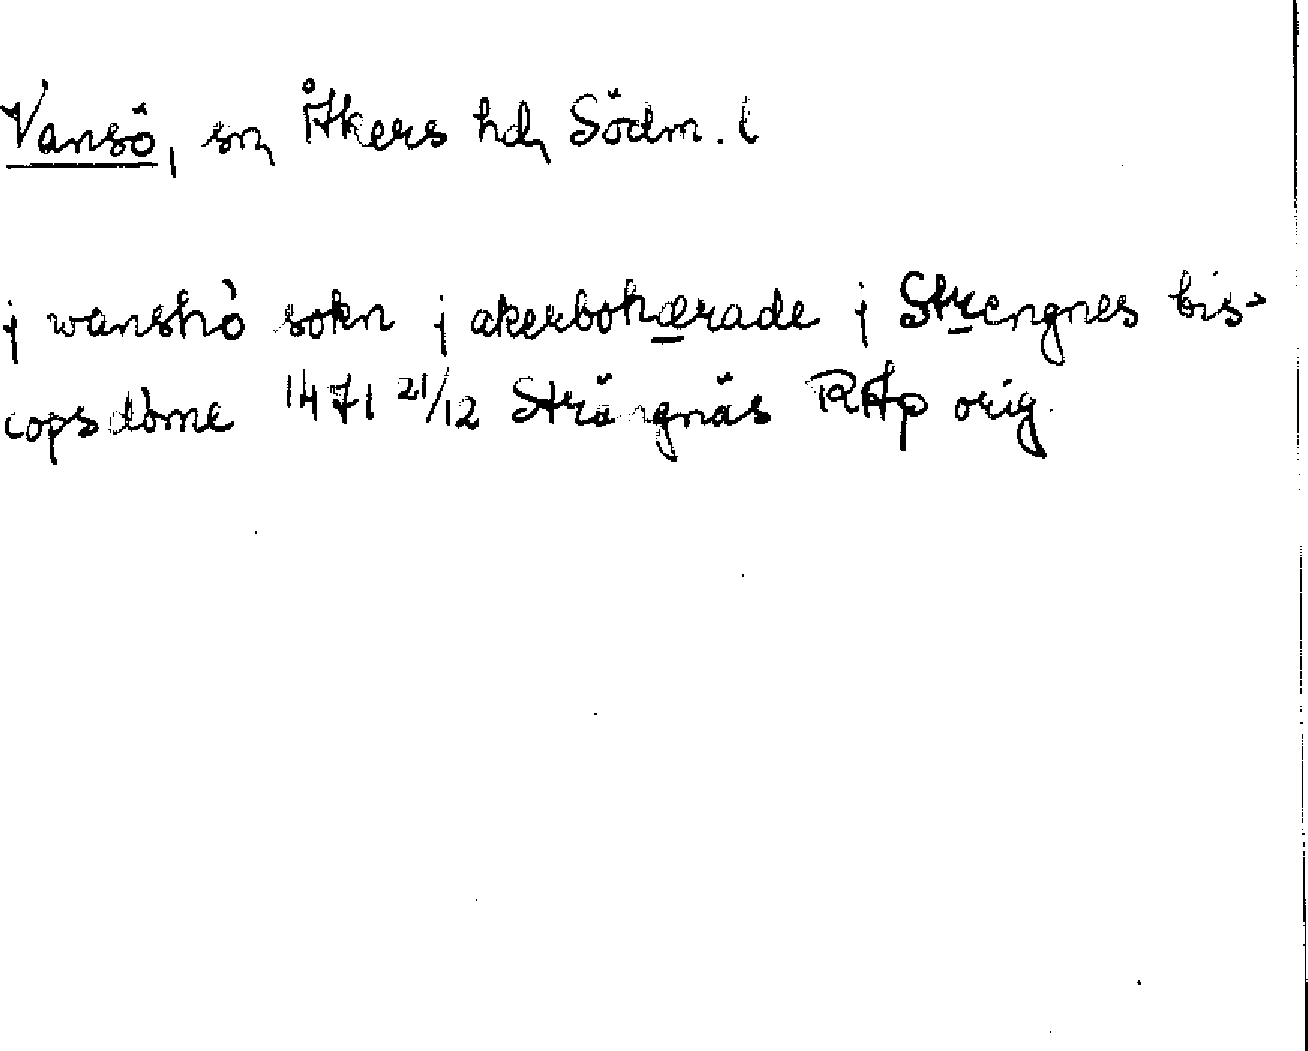 Vansö, sn, Åkers hd, Södm. l
j wanshò sokn j akerbohærade j Strengnes bis-
copsdòme 1471 21/12 Strängnäs RAp orig.